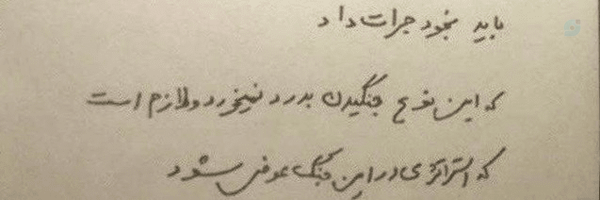 باید بخود جرات داد
که این نوع جنگیدن بدرد نمیخورد و لازم است
که استراتژی در این جنگ عوض شود